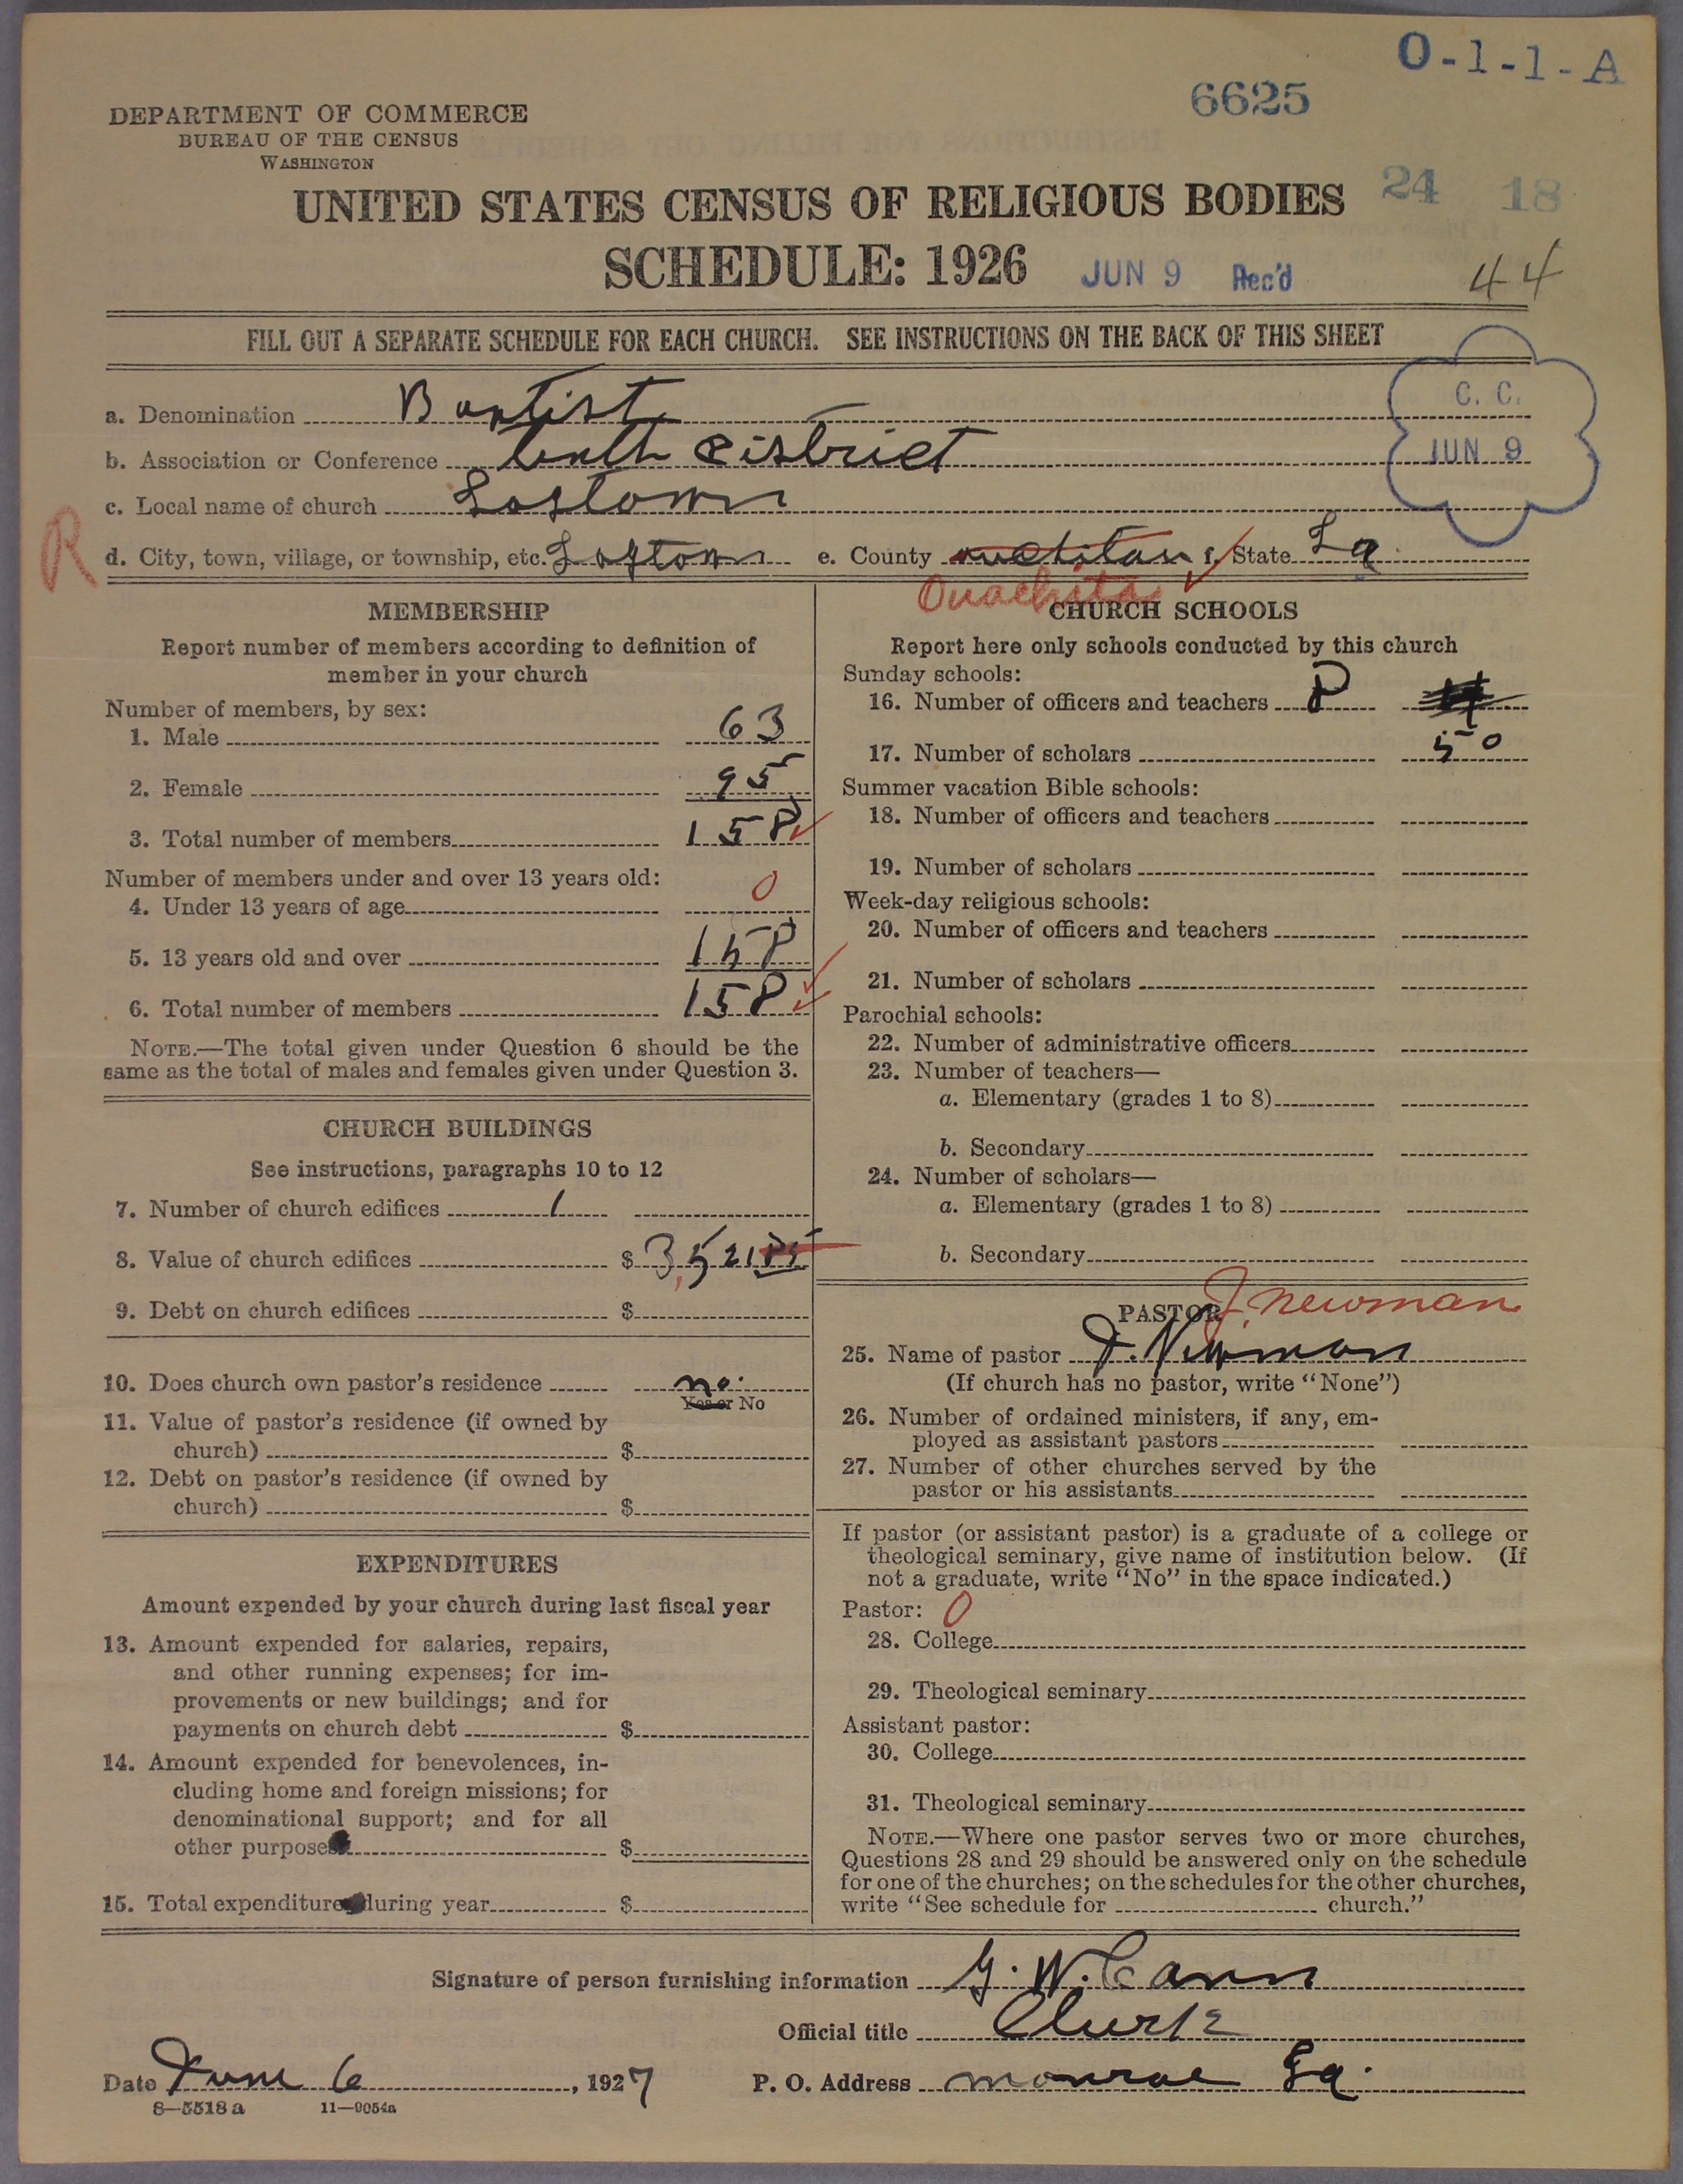 O-1-1-A
6625
DEPARTMENT OF COMMERCE
BUREAU OF THE CENSUS
WASHINGTON
UNITED STATES CENSUS OF RELIGIOUS BODIES 24 18
SCHEDULE: 1926 JUN 9 Rec'd 44
FILL OUT A SEPARATE SCHEDULE FOR EACH CHURCH. SEE INSTRUCTIONS ON THE BACK OF THIS SHEET
C. C.
JUN 9
a. Denomination Baptist
b. Association or Conference tenth District
c. Local name of church
R d. City, town, village, or township, etc. e. County f. State La
Ouachita
MEMBERSHIP
Report number of members according to definition of
member in your church
Number of members, by sex:
1. Male 63
2. Female 95
3. Total number of members 158
Number of members under and over 13 years old:
4. Under 13 years of age 0
5. 13 years old and over 158
6. Total number of members 158
NOTE.—The total given under Question 6 should be the
same as the total of males and females given under Question 3.
CHURCH BUILDINGS
See instructions, paragraphs 10 to 12
7. Number of church edifices 1
8. Value of church edifices $ 3,521 85
9. Debt on church edifices $
10. Does church own pastor's residence no.
Yes or No
11. Value of pastor's residence (if owned by
church) $
12. Debt on pastor's residence (if owned by
church) $
EXPENDITURES
Amount expended by your church during last fiscal year
13. Amount expended for salaries, repairs,
and other running expenses; for im-
provements or new buildings; and for
payments on church debt $
14. Amount expended for benevolences, in-
cluding home and foreign missions; for
denominational support; and for all
other purposes $
15. Total expenditures during year $
CHURCH SCHOOLS
Report here only schools conducted by this church
Sunday schools:
16. Number of officers and teachers 8
17. Number of scholars 50
Summer vacation Bible schools:
18. Number of officers and teachers
19. Number of scholars
Week-day religious schools:
20. Number of officers and teachers
21. Number of scholars
Parochial schools:
22. Number of administrative officers
23. Number of teachers—
a. Elementary (grades 1 to 8)
b. Secondary
24. Number of scholars—
a. Elementary (grades 1 to 8)
b. Secondary
PASTOR J. Newman
25. Name of pastor J. Newman
(If church has no pastor, write "None")
26. Number of ordained ministers, if any, em-
ployed as assistant pastors
27. Number of other churches served by the
pastor or his assistants
If pastor (or assistant pastor) is a graduate of a college or
theological seminary, give name of institution below. (If
not a graduate, write "No" in the space indicated.)
Pastor: 0
28. College
29. Theological seminary
Assistant pastor:
30. College
31. Theological seminary
NOTE.—Where one pastor serves two or more churches,
Questions 28 and 29 should be answered only on the schedule
for one of the churches; on the schedules for the other churches,
write "See schedule for church."
Signature of person furnishing information G. W. Cann
Official title Clurk
Date June 6, 1927 P. O. Address Monroe La.
8—5518a 11—9054a